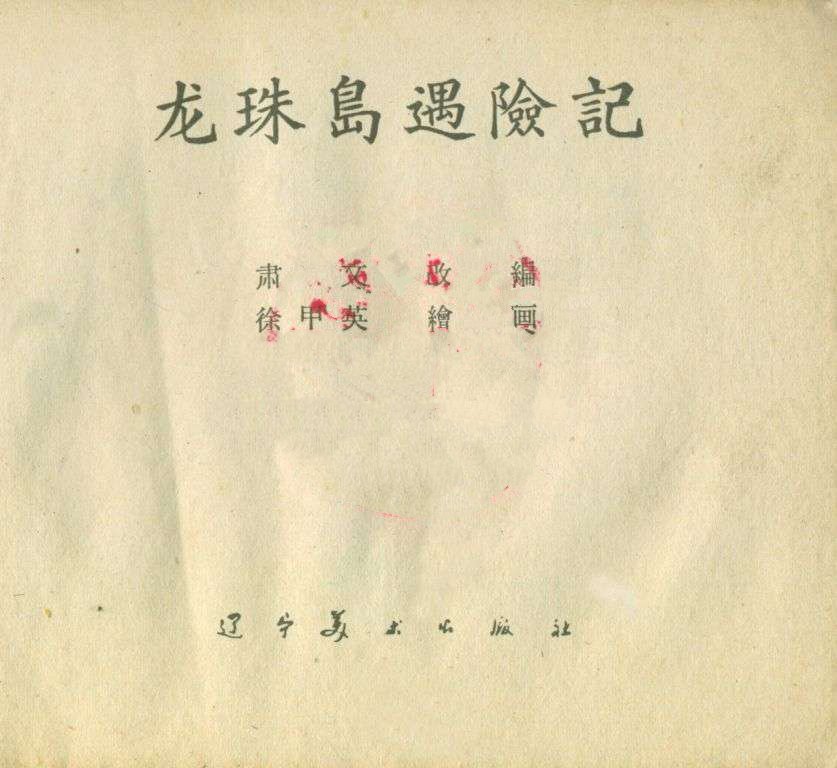 龙珠島遇險記
肃文改編
徐甲英繪画
辽宁美术出版社